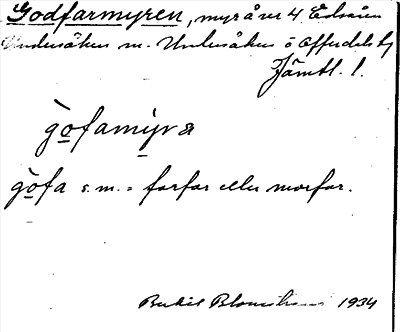 Godfarmyren, myr å nr 4 Edsåsen
Undersåkers sn. Undersåkers o Offerdals tg
Jämtl. l.
gofamyra
gofa s. m. = farfar eller morfar.
Bertil Blomström 1934